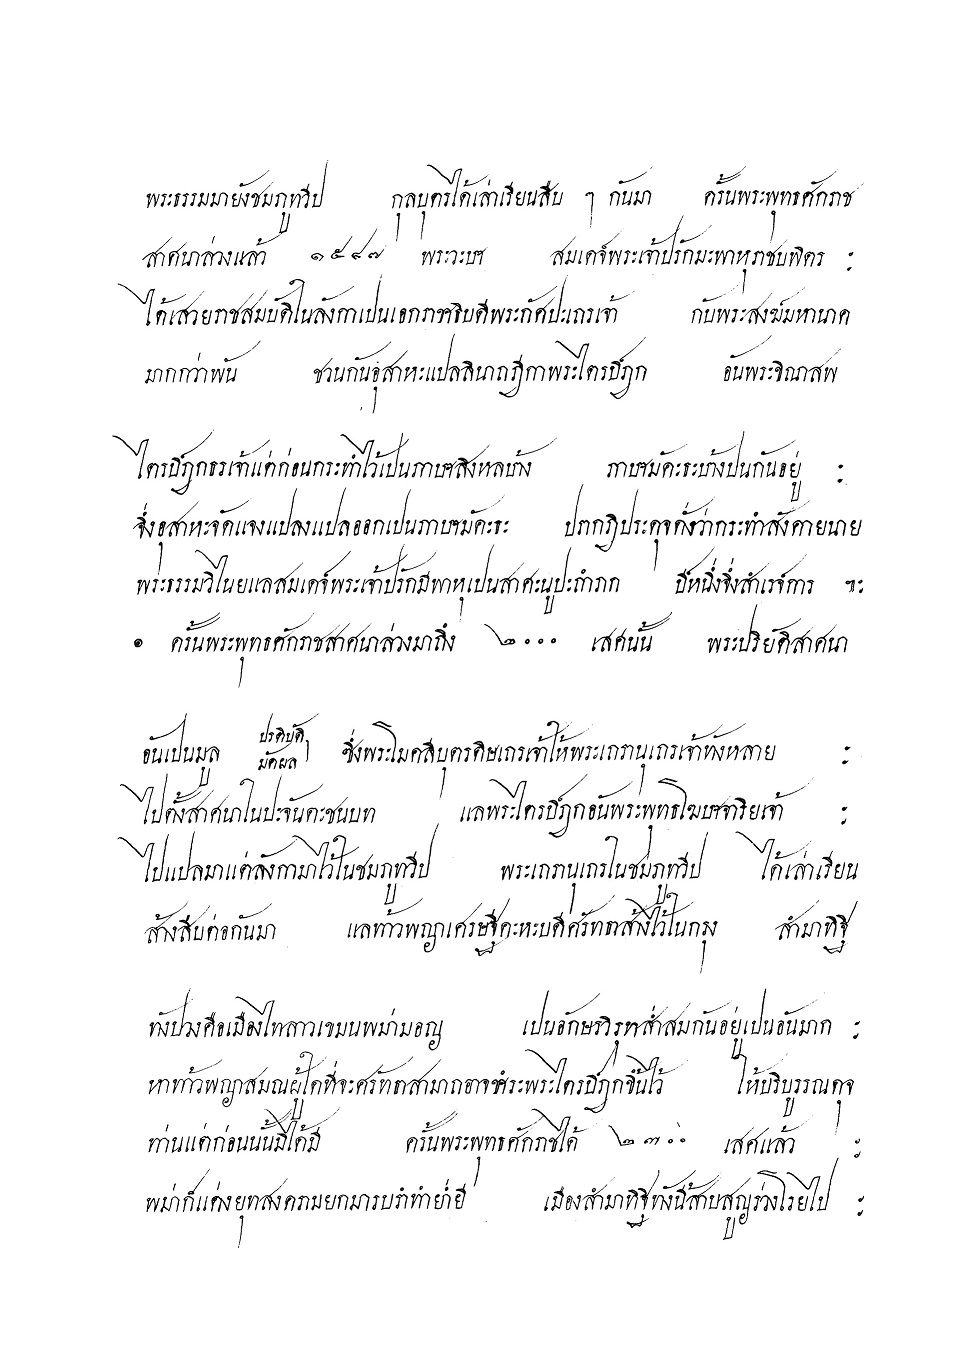 พระธรรมมายังชมภูทวีป กุลบุตรได้เล่าเรียนสืบ ๆ กันมา ครั้นพระพุทธศักราช
สาศนาล่วงแล้ว ๑๕๘๗ พระวะษา สมเดจ์พระเจ้าปรักมะพาหุราชบพิตร :
ได้เสวยราชสมบัติในลังกาเปนเอกราชาธิบดีพระกัศปะเถรเจ้า กับพระสงฆ์มหานาค
มากกว่าพัน ชวนกันอุสาหะแปลลินาถฎีกาพระไตรปิฎก อันพระอิณาสพ
ไตรปิฎกธรเจ้าแต่ก่อนกระทำไว้เปนภาษาสิงหลบ้าง ภาษามัคะธะบ้างปนกันอยู่ :
จึ่งอุสาหะจัดแจงแปลงแปลออกเปนภาษามัคะธะ ปรกฏิประดุจดั่งว่ากระทำสังคายนาย
พระธรรมวิไนยแลสมเดจ์พระเจ้าปรักมีพาหุเปนสาศะนูปะถำภก ปีหนึ่งจึ่งสำเรจ์การ ฯะ
๑ ครั้นพระพุทธศักราชสาศนาล่วงมาถึง ๒๐๐๐ เสศนั้น พระปริยัติสาศนา
อันเปนมูล ปรติบัติ มัคผล ๅ ซึ่งพระโมคลีบุตรดิษเถรเจ้าให้พระเถรานุเถรเจ้าทังหลาย :
ไปตั้งสาศนาในปะจันตะชนบท แลพระไตรปิฎกอันพระพุทธโฆษาจาริยเจ้า :
ไปแปลมาแต่ลังกามาไว้ในชมภูทวีป พระเถรานุเถรในชมภูทวีป ได้เล่าเรียน
สร้างสืบต่อกันมา แลท้าวพญาเศรษฐีคะหะบดีศรัทธาสร้างไว้ในกรุง สำมาทิฐิ
ทังปวงคือเมืองไทลาวเขมนพม่ามอญ เปนอักษรวิรุทส่ำสมกันอยู่เปนอันมาก :
หาท้าวพญาสมณผู้ใดที่จะศรัทธาสามาถอาจชำระพระไตรปิฎกขึ้นไว้ ให้บริบูรรณดุจ
ท่านแต่ก่อนนั้นมิได้มี ครั้นพระพุทธศักราชได้ ๒๓๐๐ เสศแล้ว :
พม่าก็แต่งยุทสงครามยกมารบราทำย่ำยี เมืองสำมาทิฐิทังนี้สาบสูญร่วงโรยไป :